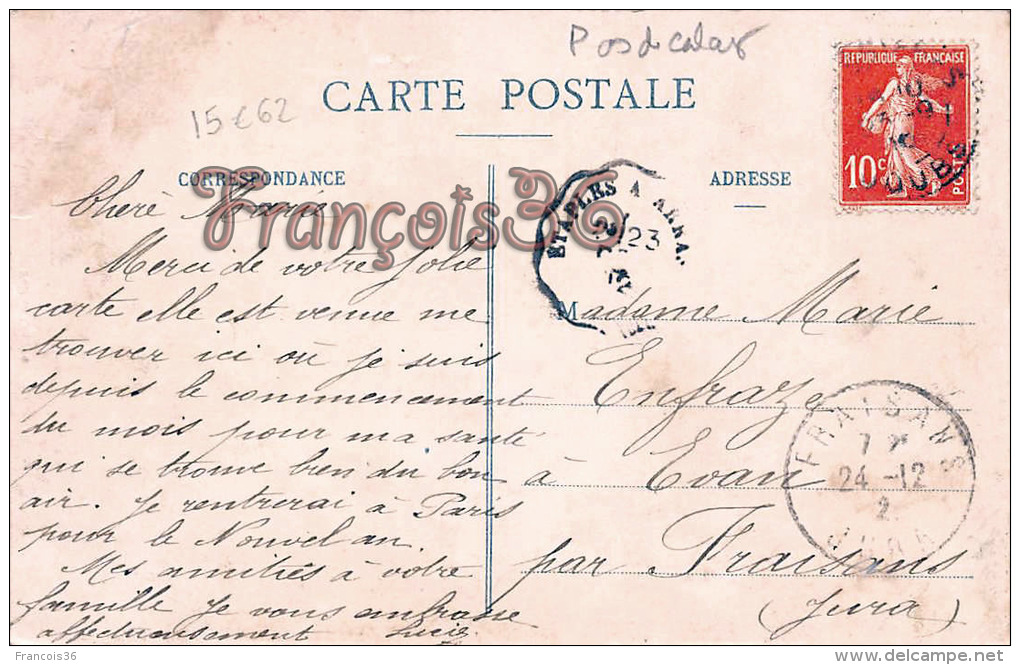 Pas de calais
15 € 62
CARTE POSTALE
REPUBLIQUE FRANÇAISE
10c
POSTES
CORRESPONDANCE
ADRESSE
François36
ETAPLES A ARRA..
23
Chère Marie
Merci de votre Jolie
carte elle est venue me
trouver ici où je suis
depuis le commencement
du mois pour ma santé
qui se trouve bien du bon
air. Je rentrerai à Paris
pour le Nouvel an.
Mes amitiés à votre
famille Je vous embrasse
affectueusement Lucie
Madame Marie
Enfraze
à Evan
par Fraisans
(Jura)
FRAISANS
24 -12
JURA
Francois36
delcampe.net